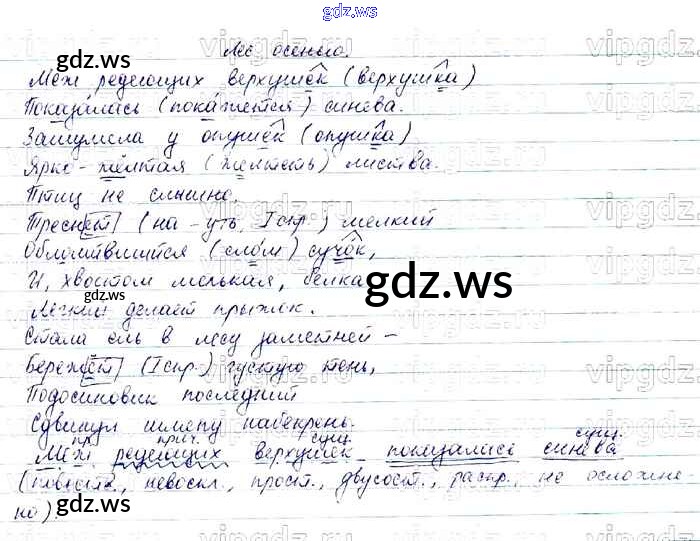 gdz.ws
Лес осенью.
Меж редеющих верхушек (верхушка)
Показалась (покажется) синева.
Зашумела у опушек (опушка)
Ярко-жёлтая (желтеть) листва.
Птиц не слышно.
Треснет (на -уть, I спр.) мелкий
Обломившийся (слом) сучок,
И, хвостом мелькая, белка
Лёгкий делает прыжок.
Стала ель в лесу заметней –
Бережёт (I спр.) густую тень,
Подосиновик последний
Сдвинул шляпу набекрень.
пр. прич. сущ. сущ.
Меж редеющих верхушек показалась синева
(повеств., невоскл., прост., двусост., распр., не осложне-
но)
gdz.ws
gdz.ws
gdz.ws
gdz.ws
gdz.ws